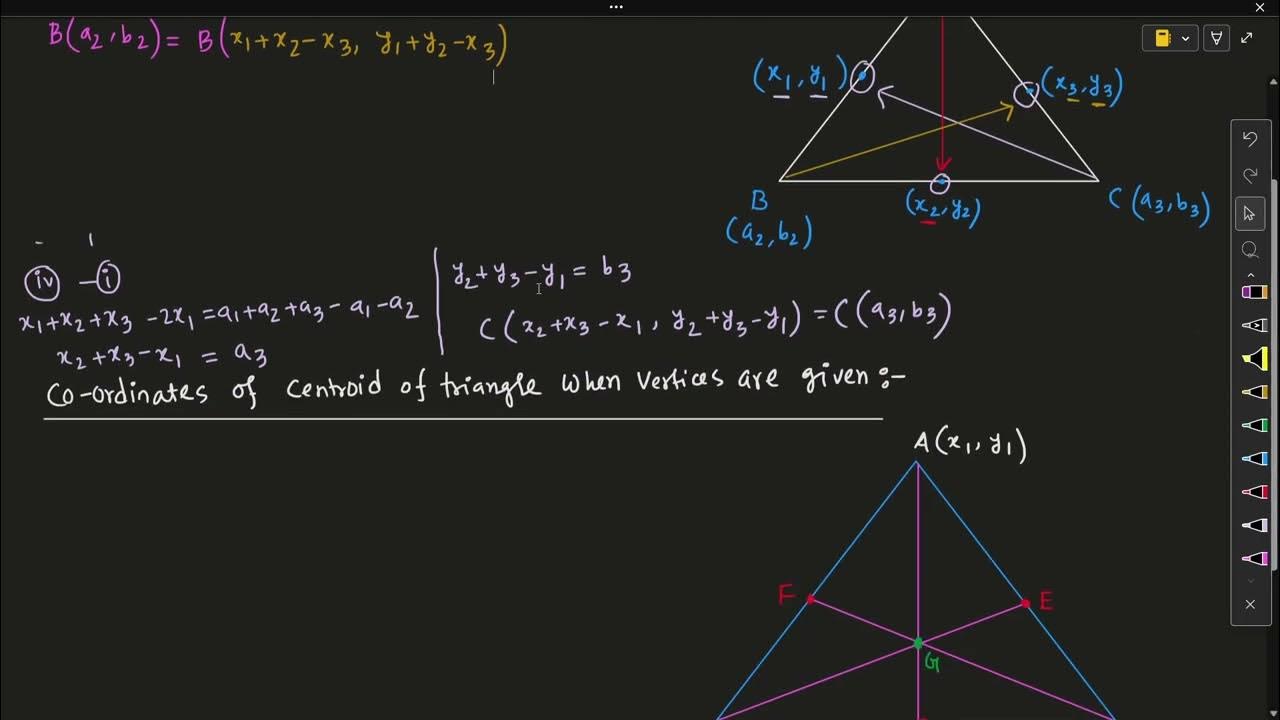 B(a₂, b₂) = B(x₁+x₂-x₃, y₁+y₂-x₃)
(x₁, y₁)
(x₃, y₃)
B
(x₂, y₂)
C(a₃, b₃)
(a₂, b₂)
(iv) - (i)
x₁+x₂+x₃ -2x₁ = a₁+a₂+a₃-a₁-a₂
x₂+x₃-x₁ = a₃
y₂+y₃-y₁ = b₃
C(x₂+x₃-x₁, y₂+y₃-y₁) = C(a₃, b₃)
Co-ordinates of centroid of triangle when vertices are given :-
A(x₁, y₁)
F
E
G